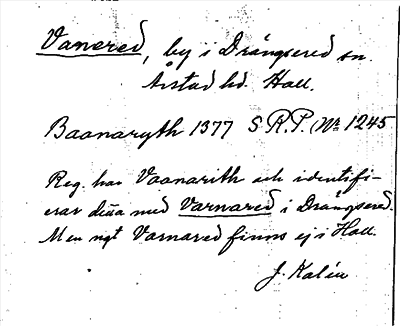 Vanered, by i Drängsered sn.
Årstad hd. Hall.
Baanaryth 1377 S.R.P. Nr 1245
Reg. har Vaanarith och identifi-
erar detta med Varnared i Drängsered.
Men ngt Varnared finns ej i Hall.
J. Kalén